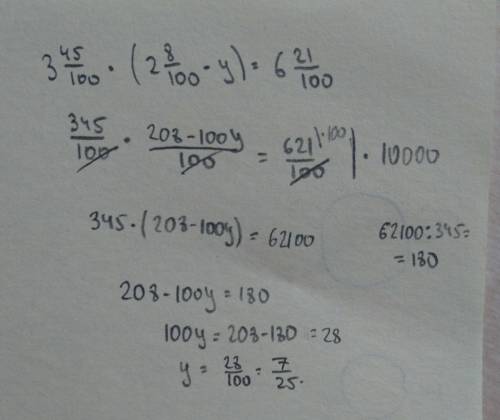 3 45/100 · (2 8/100 - y) = 6 21/100
345/100 · 208-100y/100 = 621/100 |·100 | · 10000
345 · (208-100y) = 62100
62100:345=
=180
208-100y = 180
100y = 208-180 = 28
y = 28/100 = 7/25.